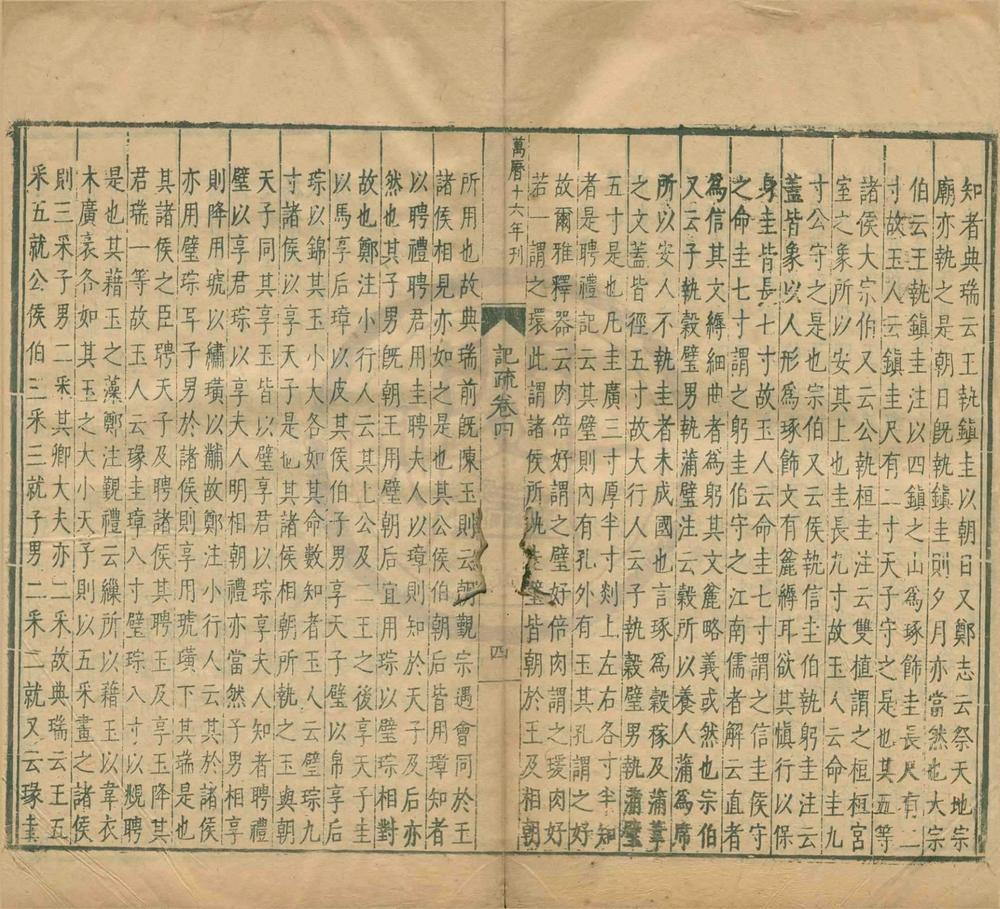 知者典瑞云王執鎮圭以朝日又鄭志云祭天地宗
廟亦執之是朝日旣執鎮圭則夕月亦當然也大宗
伯云王執鎮圭注以四鎮之山爲琢飾圭長尺有二
寸故玉人云鎮圭尺有二寸天子守之是也其五等
諸侯大宗伯又云公執桓圭注云雙植謂之桓桓宮
室之象所以安其上也圭長九寸故玉人云命圭九
寸公守之是也宗伯又云侯執信圭伯執躬圭注云
蓋皆象以人形爲琢飾文有麄縟耳欲其愼行以保
身圭皆長七寸故玉人云命圭七寸謂之信圭侯守
之命圭七寸謂之躬圭伯守之江南儒者解云直者
爲信其文縟細曲者爲躬其文麄略義或然也宗伯
又云子執穀璧男執蒲璧注云穀所以養人蒲爲席
所以安人不執圭者未成國也言琢爲穀稼及蒲葦
之文蓋皆徑五寸故大行人云子執穀璧男執蒲璧
五寸是也凡圭廣三寸厚半寸剡上左右各寸半知
者是聘禮記云其璧則內有孔外有玉其孔謂之好
故爾雅釋器云肉倍好謂之璧好倍肉謂之瑗肉好
若一謂之環此謂諸侯所璧皆朝於王及相朝
萬曆十六年刊
記疏卷四
四
所用也故典瑞前旣陳玉則云朝覲宗遇會同於王
諸侯相見亦如之是也其公侯伯朝后皆用璋知者
以聘禮聘君用圭聘夫人以璋則知於天子及后亦
然也其子男旣朝王用璧朝后宜用琮以璧琮相對
故也鄭注小行人云其上公及二王之後享天子圭
以馬享后璋以皮其侯伯子男享天子璧以帛享后
琮以錦其玉小大各如其命數知者玉人云璧琮九
寸諸侯以享天子是也其諸侯相朝所執之玉與朝
天子同其享玉皆以璧享君以琮享夫人知者聘禮
璧以享君琮以享夫人明相朝禮亦當然子男相享
則降用琥以繡璜以黼故鄭注小行人云其於諸侯
亦用璧琮耳子男於諸侯則享用琥璜下其瑞是也
其諸侯之臣聘天子及聘諸侯其聘玉及享玉降其
君瑞一等故玉人云瑑圭璋八寸璧琮八寸以覜聘
是也其藉玉之藻鄭注覲禮云繅所以藉玉以韋衣
木廣袤各如其玉之大小天子則以五采畫之諸侯
則三采子男二采其卿大夫亦二采故典瑞云王五
采五就公侯伯三采三就子男二采二就又云瑑圭